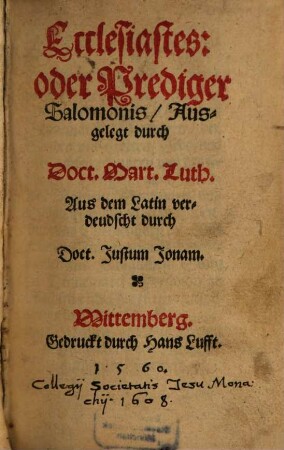 Ecclesiastes:
oder Prediger
Salomonis / Aus-
gelegt durch
Doct. Mart. Luth.
Aus dem Latin ver-
deudscht durch
Doct. Justum Jonam.
Wittemberg.
Gedruckt durch Hans Lufft.
1560.
Collegij Societatis Jesu Mona
chij. 1608.